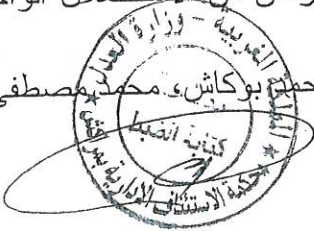 محمد بوكاش، محمد مصطفى
المملكة المغربية - وزارة العدل
كتابة الضبط
محكمة الاستئناف الإدارية بمراكش